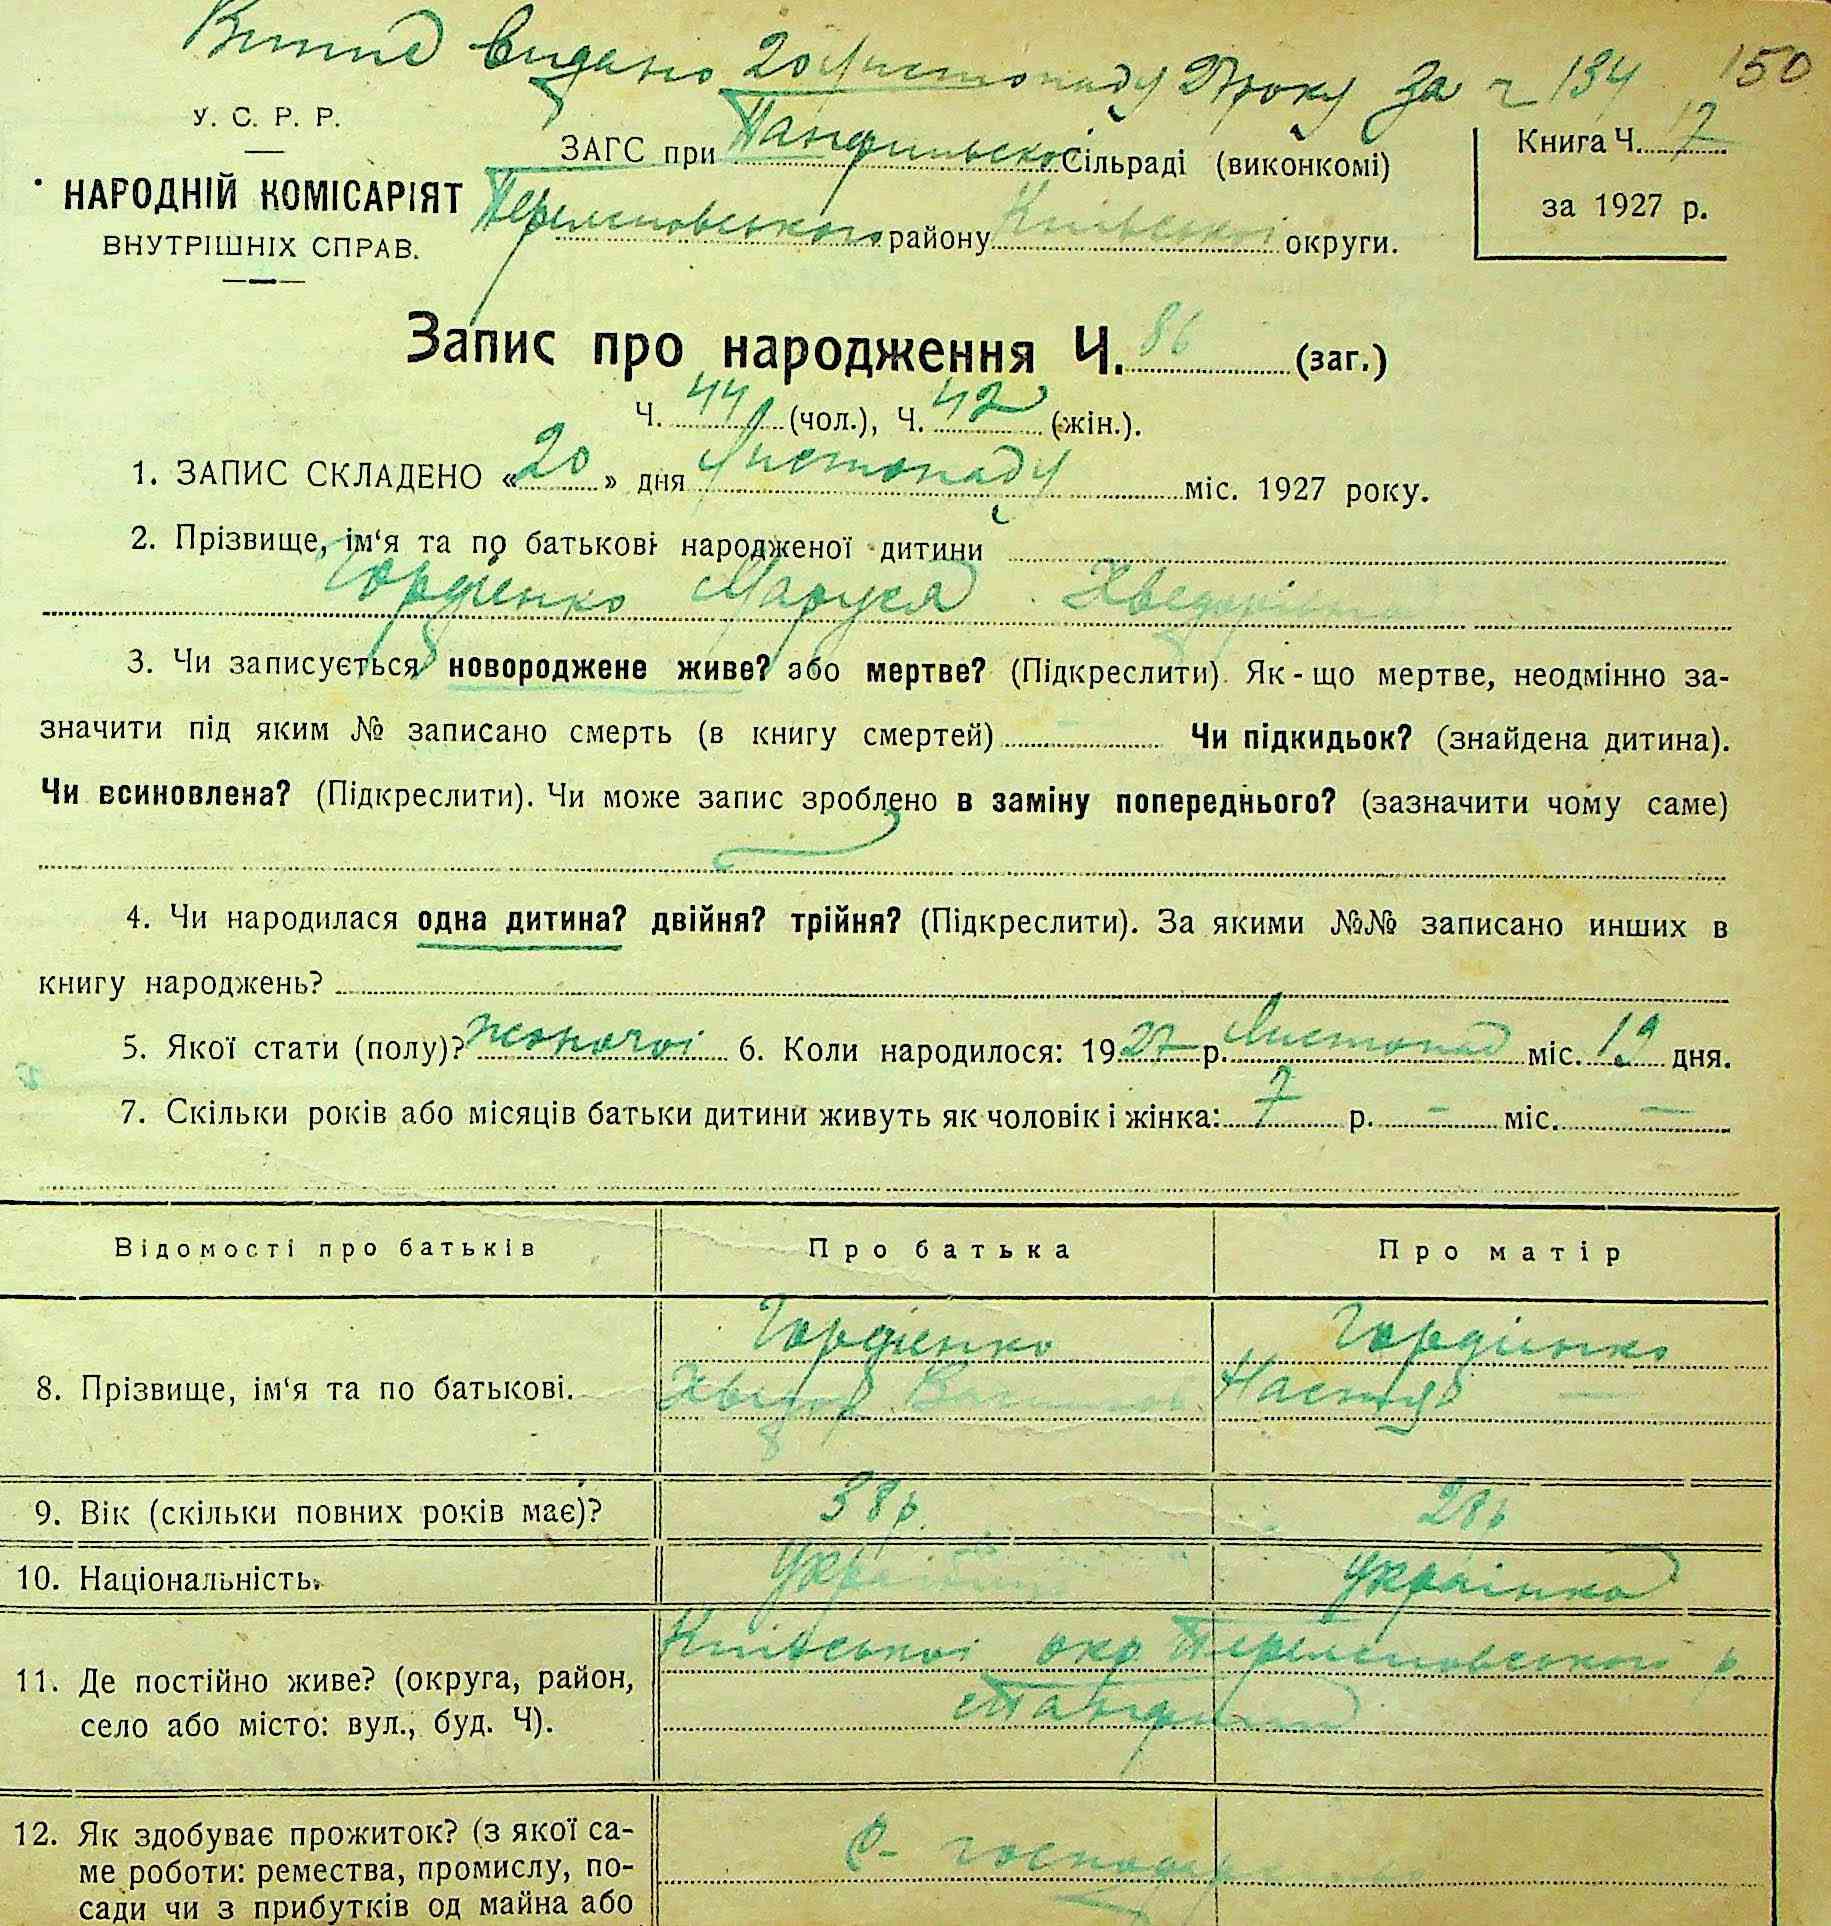 Витяг видано 20 Листопаду 27 року за ч 134 150
У. С. Р. Р.
НАРОДНІЙ КОМІСАРІЯТ
ВНУТРІШНІХ СПРАВ.
ЗАГС при Панфильскої Сільраді (виконкомі)
району Київської округи.
Книга Ч. 17
за 1927 р.
Запис про народження Ч. 86 (заг.)
Ч. 44 (чол.), Ч. 42 (жін.).
1. ЗАПИС СКЛАДЕНО «20» дня Листопаду міс. 1927 року.
2. Прізвище, ім‘я та по батькові народженої дитини
Гордієнко Маруся Хведорівна
3. Чи записується новороджене живе? або мертве? (Підкреслити). Як-що мертве, неодмінно за-
значити під яким № записано смерть (в книгу смертей) Чи підкидьок? (знайдена дитина).
Чи всиновлена? (Підкреслити). Чи може запис зроблено в заміну попереднього? (зазначити чому саме)
4. Чи народилася одна дитина? двійня? трійня? (Підкреслити). За якими №№ записано инших в
книгу народжень?
5. Якої стати (полу)? жоночої 6. Коли народилося: 1927 р. Листопад міс. 19 дня.
7. Скільки років або місяців батьки дитини живуть як чоловік і жінка: 7 р. – міс. –
Відомості про батьків Про батька Про матір
Гордієнко Гордієнко
8. Прізвище, ім‘я та по батькові. Хведор Настя –
9. Вік (скільки повних років має)? 38 р. 28 р
10. Національність. Українець Українка
Київської окр. р.
11. Де постійно живе? (округа, район,
село або місто: вул., буд. Ч).
12. Як здобуває прожиток? (з якої са-
ме роботи: ремества, промислу, по-
сади чи з прибутків од майна або